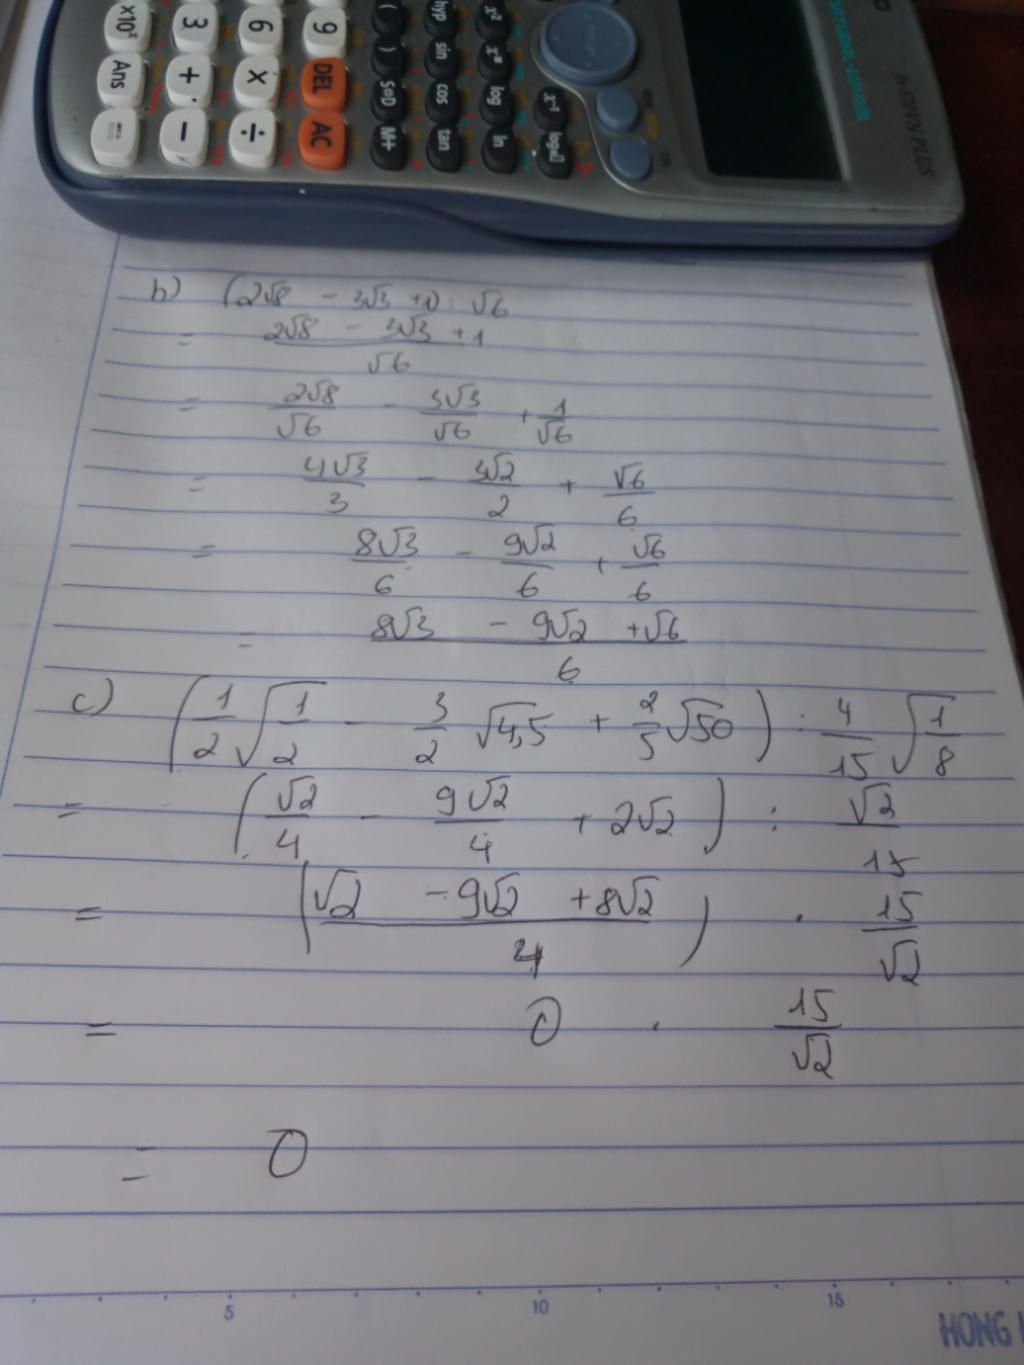 x10ˣ 3 6 9 ( hyp x²
Ans + x DEL ) sin xⁿ
= - ÷ AC S⇔D cos log x⁻¹
M+ tan ln log
b) (2√8 - 3√3 + 1) : √6
= (2√8 - 3√3 + 1)/√6
= 2√8/√6 - 3√3/√6 + 1/√6
= 4√3/3 - 3√2/2 + √6/6
= 8√3/6 - 9√2/6 + √6/6
= (8√3 - 9√2 + √6)/6
c) (1/2 √(1/2) - 3/2 √4,5 + 2/5 √50) : 4/15 √(1/8)
= (√2/4 - 9√2/4 + 2√2) : √2/15
= ((√2 - 9√2 + 8√2)/4) . 15/√2
= 0 . 15/√2
= 0
5 10 15
HONG